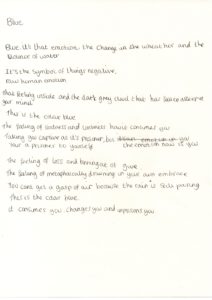 Blue
Blue it's that emotion the change in the wheather and the
Balance of water
It's the symbol of things negative,
raw human emotion
that feeling inside and the dark grey cloud that has taken over
your mind
This is the colour blue
The feeling of sadness and loneliness house consumes you
Taking you captive as it's prisoner, but
Your a prisoner to yourself the emotion now is you
The feeling of loss and brining of grive
The feeling of metaphorically drowning in your own embrace
You cant get a gasp of air because the rain is still pouring
This is the colour blue
it consumes you, changes you and imprisons you